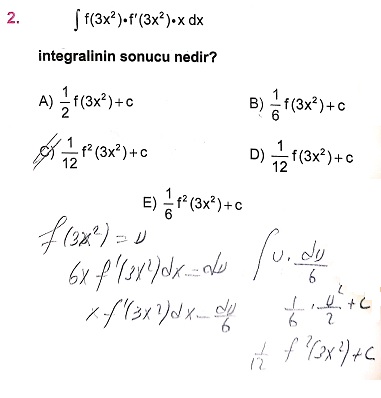 2. ∫ f(3x²)•f'(3x²)•x dx
integralinin sonucu nedir?
A) 1/2 f(3x²)+c B) 1/6 f(3x²)+c
C) 1/12 f²(3x²)+c D) 1/12 f(3x²)+c
E) 1/6 f²(3x²)+c
f(3x²) = u
6x f'(3x²)dx = du
x f'(3x²)dx = du/6
∫ u · du/6
1/6 · u²/2 + c
1/12 f²(3x²)+c